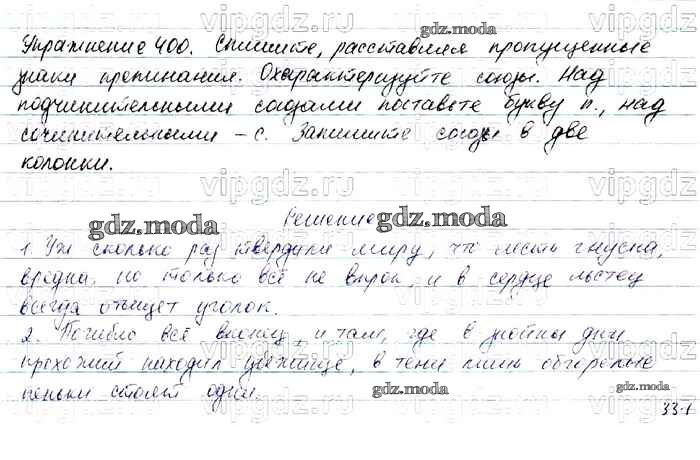 Упражнение 400. Спишите, расставляя пропущенные
знаки препинания. Охарактеризуйте союзы. Над
подчинительными союзами поставьте букву п., над
сочинительными – с. Запишите союзы в две
колонки.
Решение
1. Уж сколько раз твердили миру, что лесть гнусна,
вредна, но только всё не впрок, и в сердце льстец
всегда отыщет уголок.
2. Погибло всё вконец, и там, где в знойны дни
прохожий находил убежище, в тени лишь обгорелые
пеньки стоят одни.
331
gdz.moda
gdz.moda
gdz.moda
gdz.moda
gdz.moda
vipgdz.ru